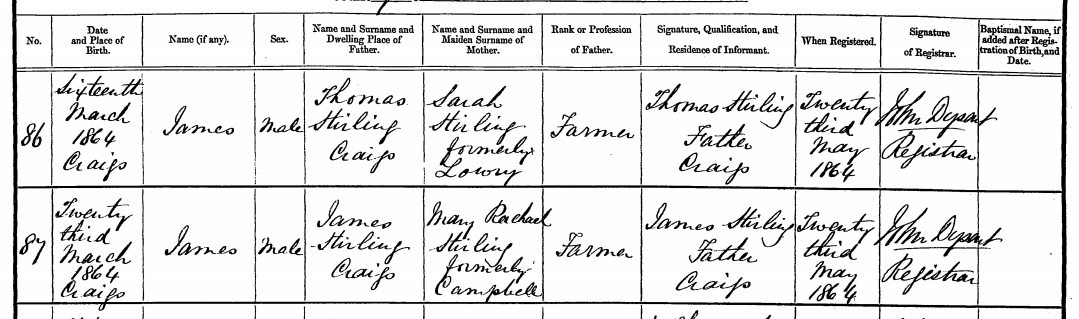 No.
Date
and Place of
Birth.
Name (if any).
Sex.
Name and Surname and
Dwelling Place of
Father.
Name and Surname and
Maiden Surname of
Mother.
Rank or Profession
of Father.
Signature, Qualification, and
Residence of Informant.
When Registered.
Signature
of Registrar.
Baptismal Name, if
added after Regis-
tration of Birth, and
Date.
86
Sixteenth
March
1864
Craigs
James
Male
Thomas
Stirling
Craigs
Sarah
Stirling
formerly
Lowry
Farmer
Thomas Stirling
Father
Craigs
Twenty
third
May
1864
John
Registrar
87
Twenty
third
March
1864
Craigs
James
Male
James
Stirling
Craigs
Mary Rachael
Stirling
formerly
Campbell
Farmer
James Stirling
Father
Craigs
Twenty
third
May
1864
John
Registrar